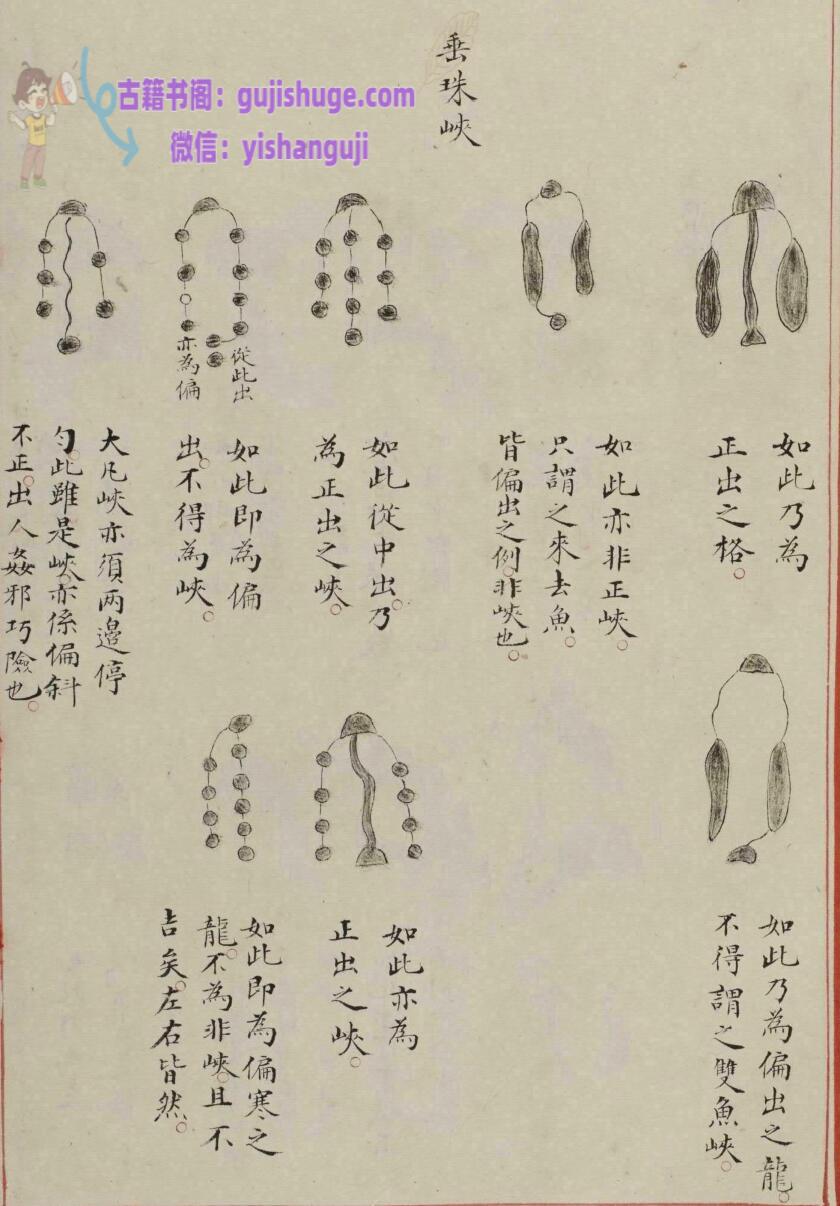 古籍书阁：gujishuge.com
微信：yishanguji
如此乃為
正出之格。
如此乃為偏出之龍。
不得謂之雙魚峽。
如此亦非正峽。
只謂之來去魚。
皆偏出之例。非峽也。
垂珠峽
如此從中出。乃
為正出之峽。
如此亦為
正出之峽。
從此出
亦為偏
如此即為偏
出。不得為峽。
如此即為偏寒之
龍。不為非峽。且不
吉矣。左右皆然。
大凡峽亦須两邊停
勻。此雖是峽。亦係偏斜
不正。出人姦邪巧險也。